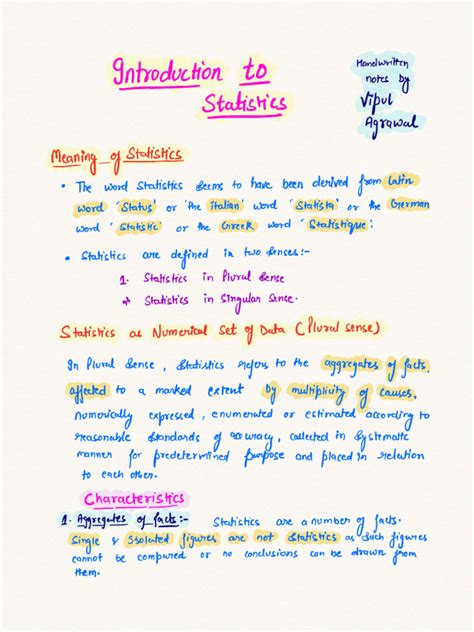 Introduction to
Statistics
Handwritten
notes by
Vipul
Agrawal
Meaning of Statistics
• The word Statistics seems to have been derived from Latin
word 'Status' or 'the Italian' word 'Statista' or the German
word 'Statistic' or the Greek word 'Statistique'.
• Statistics are defined in two senses:-
1. Statistics in Plural Sense
2. Statistics in Singular Sense.
Statistics as Numerical Set of Data (Plural sense)
In Plural Sense, Statistics refers to the aggregates of facts,
affected to a marked extent by multiplicity of causes,
numerically expressed, enumerated or estimated according to
reasonable standards of accuracy, collected in Systematic
manner for predetermined purpose and placed in relation
to each other.
Characteristics
1. Aggregates of facts:- Statistics are a number of facts.
Single & Isolated figures are not Statistics as Such figures
cannot be compared or no conclusions can be drawn from
them.